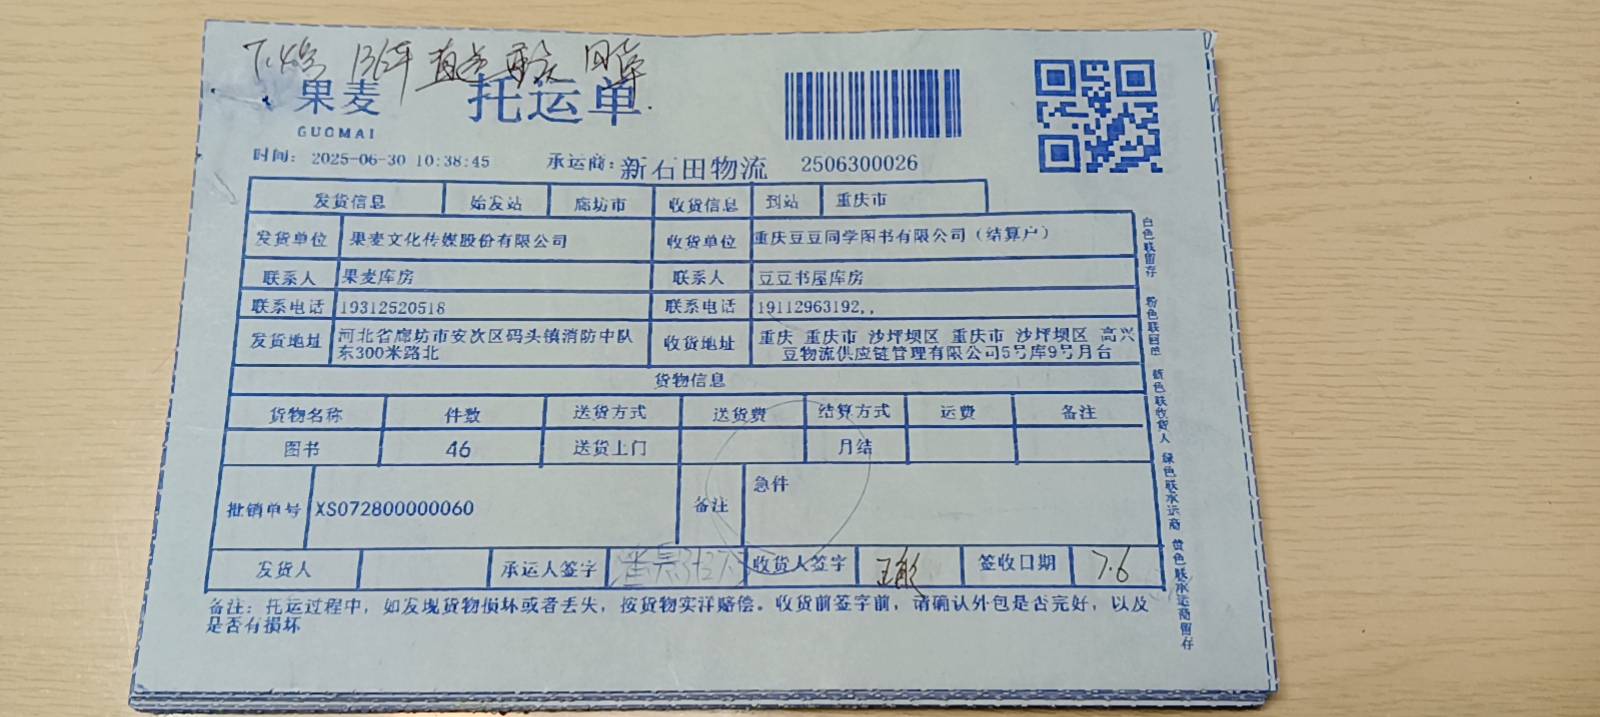 果麦 托运单
GUOMAI
时间: 2025-06-30 10:38:45 承运商: 新石田物流 2506300026
发货信息 始发站 廊坊市 收货信息 到站 重庆市
发货单位 果麦文化传媒股份有限公司 收货单位 重庆豆豆同学图书有限公司（结算户）
联系人 果麦库房 联系人 豆豆书屋库房
联系电话 19312520518 联系电话 19112963192,,
发货地址 河北省廊坊市安次区码头镇消防中队 收货地址 重庆 重庆市 沙坪坝区 重庆市 沙坪坝区 高兴
东300米路北 豆物流供应链管理有限公司5号库9号月台
货物信息
货物名称 件数 送货方式 送货费 结算方式 运费 备注
图书 46 送货上门 月结
批销单号 XS072800000060 备注 急件
发货人 承运人签字 收货人签字 签收日期 7.6
备注: 托运过程中, 如发现货物损坏或者丢失, 按货物实洋赔偿。收货前签字前, 请确认外包是否完好, 以及
是否有损坏
白色联留存 粉色联回单 蓝色联收货人 绿色联承运商 黄色联承运商留存